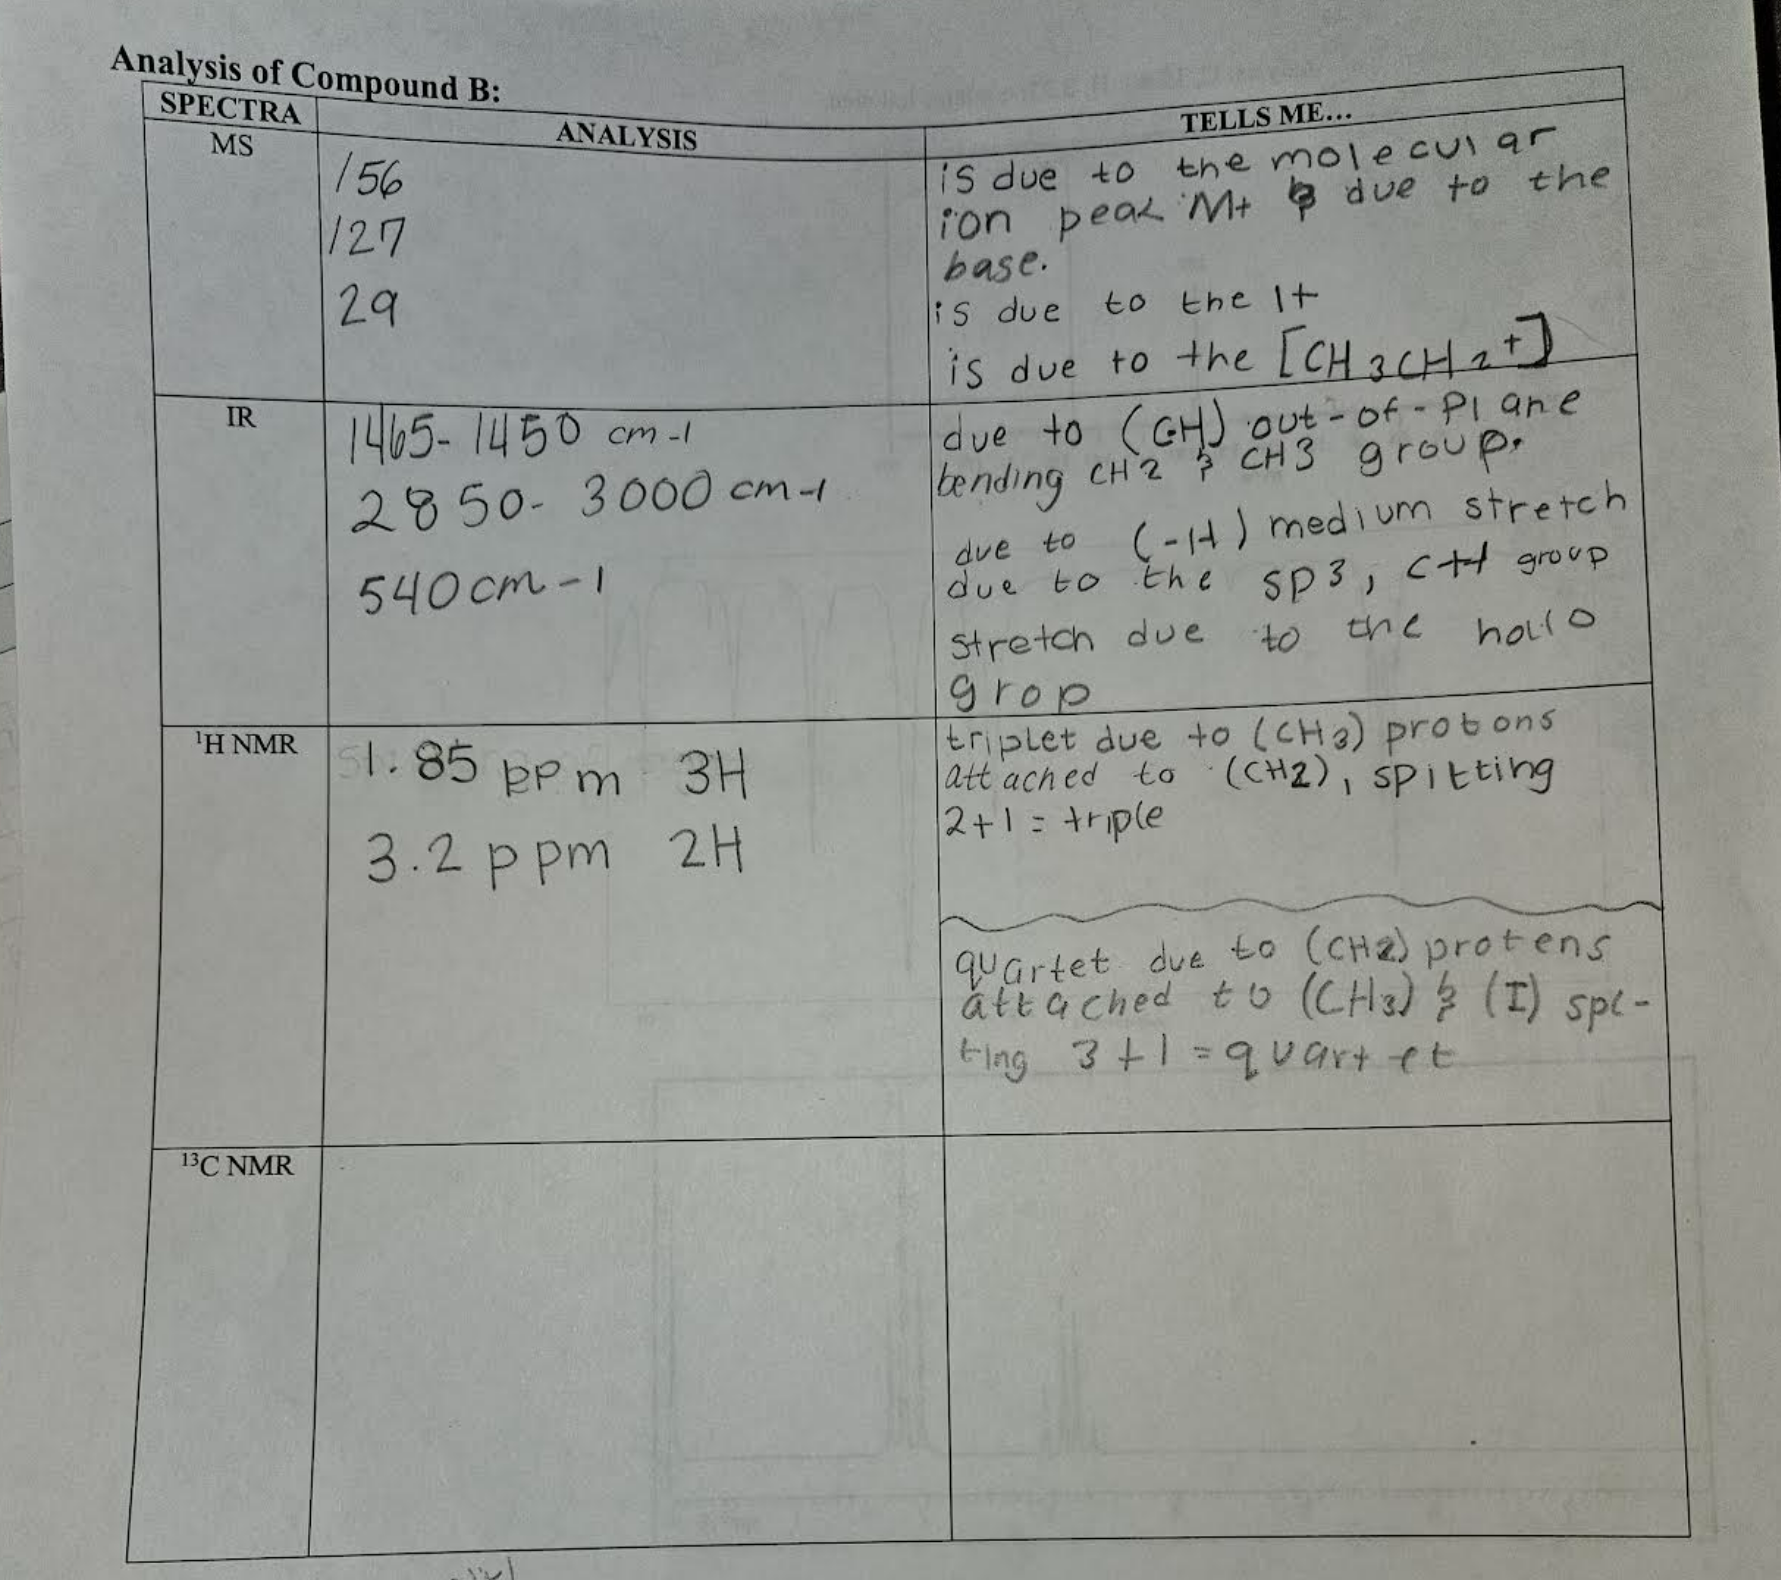 Analysis of Compound B:
SPECTRA
ANALYSIS
TELLS ME...
MS
156
127
29
is due to the molecular
ion peak M+ & due to the
base.
is due to the I+
is due to the [CH3CH2+]
IR
1465-1450 cm-1
2850-3000 cm-1
540cm-1
due to (CH) out-of-plane
bending CH2 & CH3 group.
due to (-H) medium stretch
due to the sp3, CH group
stretch due to the hallo
grop
¹H NMR
1.85 ppm 3H
3.2 ppm 2H
triplet due to (CH3) protons
attached to (CH2), spitting
2+1= triple
quartet due to (CH2) protens
attached to (CH3) & (I) spl-
ting 3+1=quartet
¹³C NMR